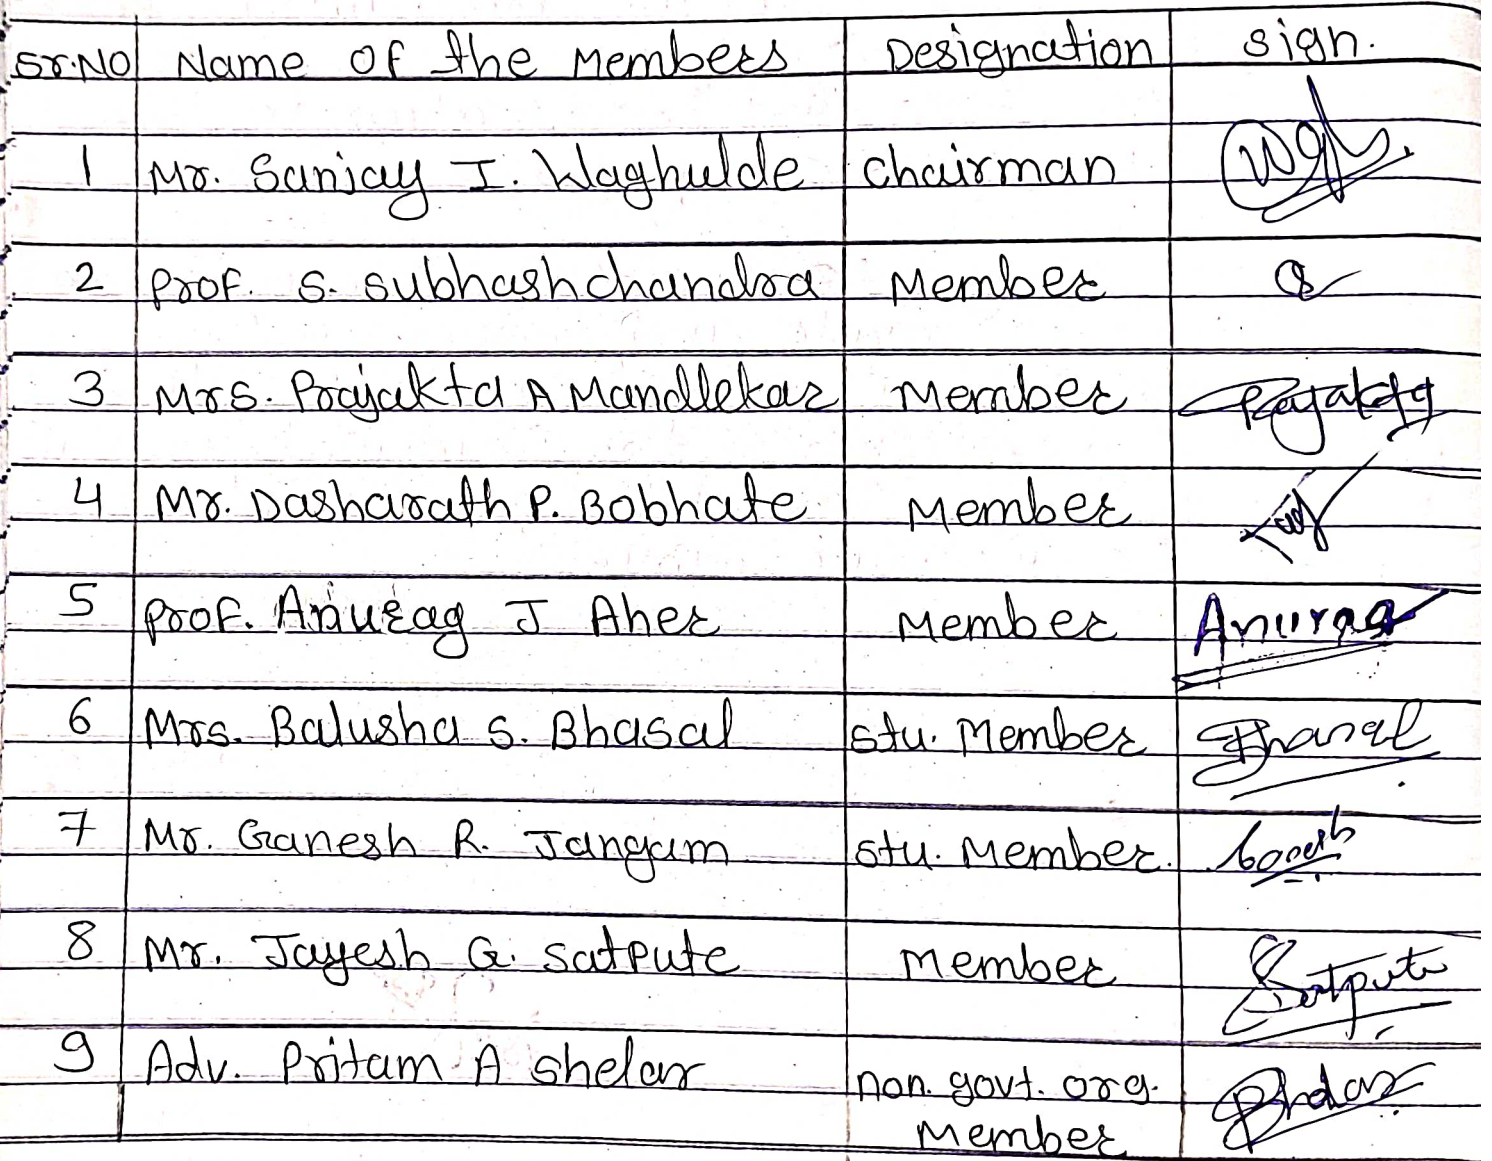 Sr.No Name of the Members Designation Sign.
1 Mr. Sanjay I. Waghulde Chairman
2 Prof. S. Subhashchandra Member
3 Mrs. Prajakta A Mandlekar Member Prajakta
4 Mr. Dasharath P. Bobhate Member
5 Prof. Anurag J Aher Member Anurag
6 Mrs. Balusha S. Bhasal Stu. Member Bhasal
7 Mr. Ganesh R. Jangam Stu. Member.
8 Mr. Jayesh G. Satpute Member Satpute
9 Adv. Pritam A Shelar non. govt. org.
Member